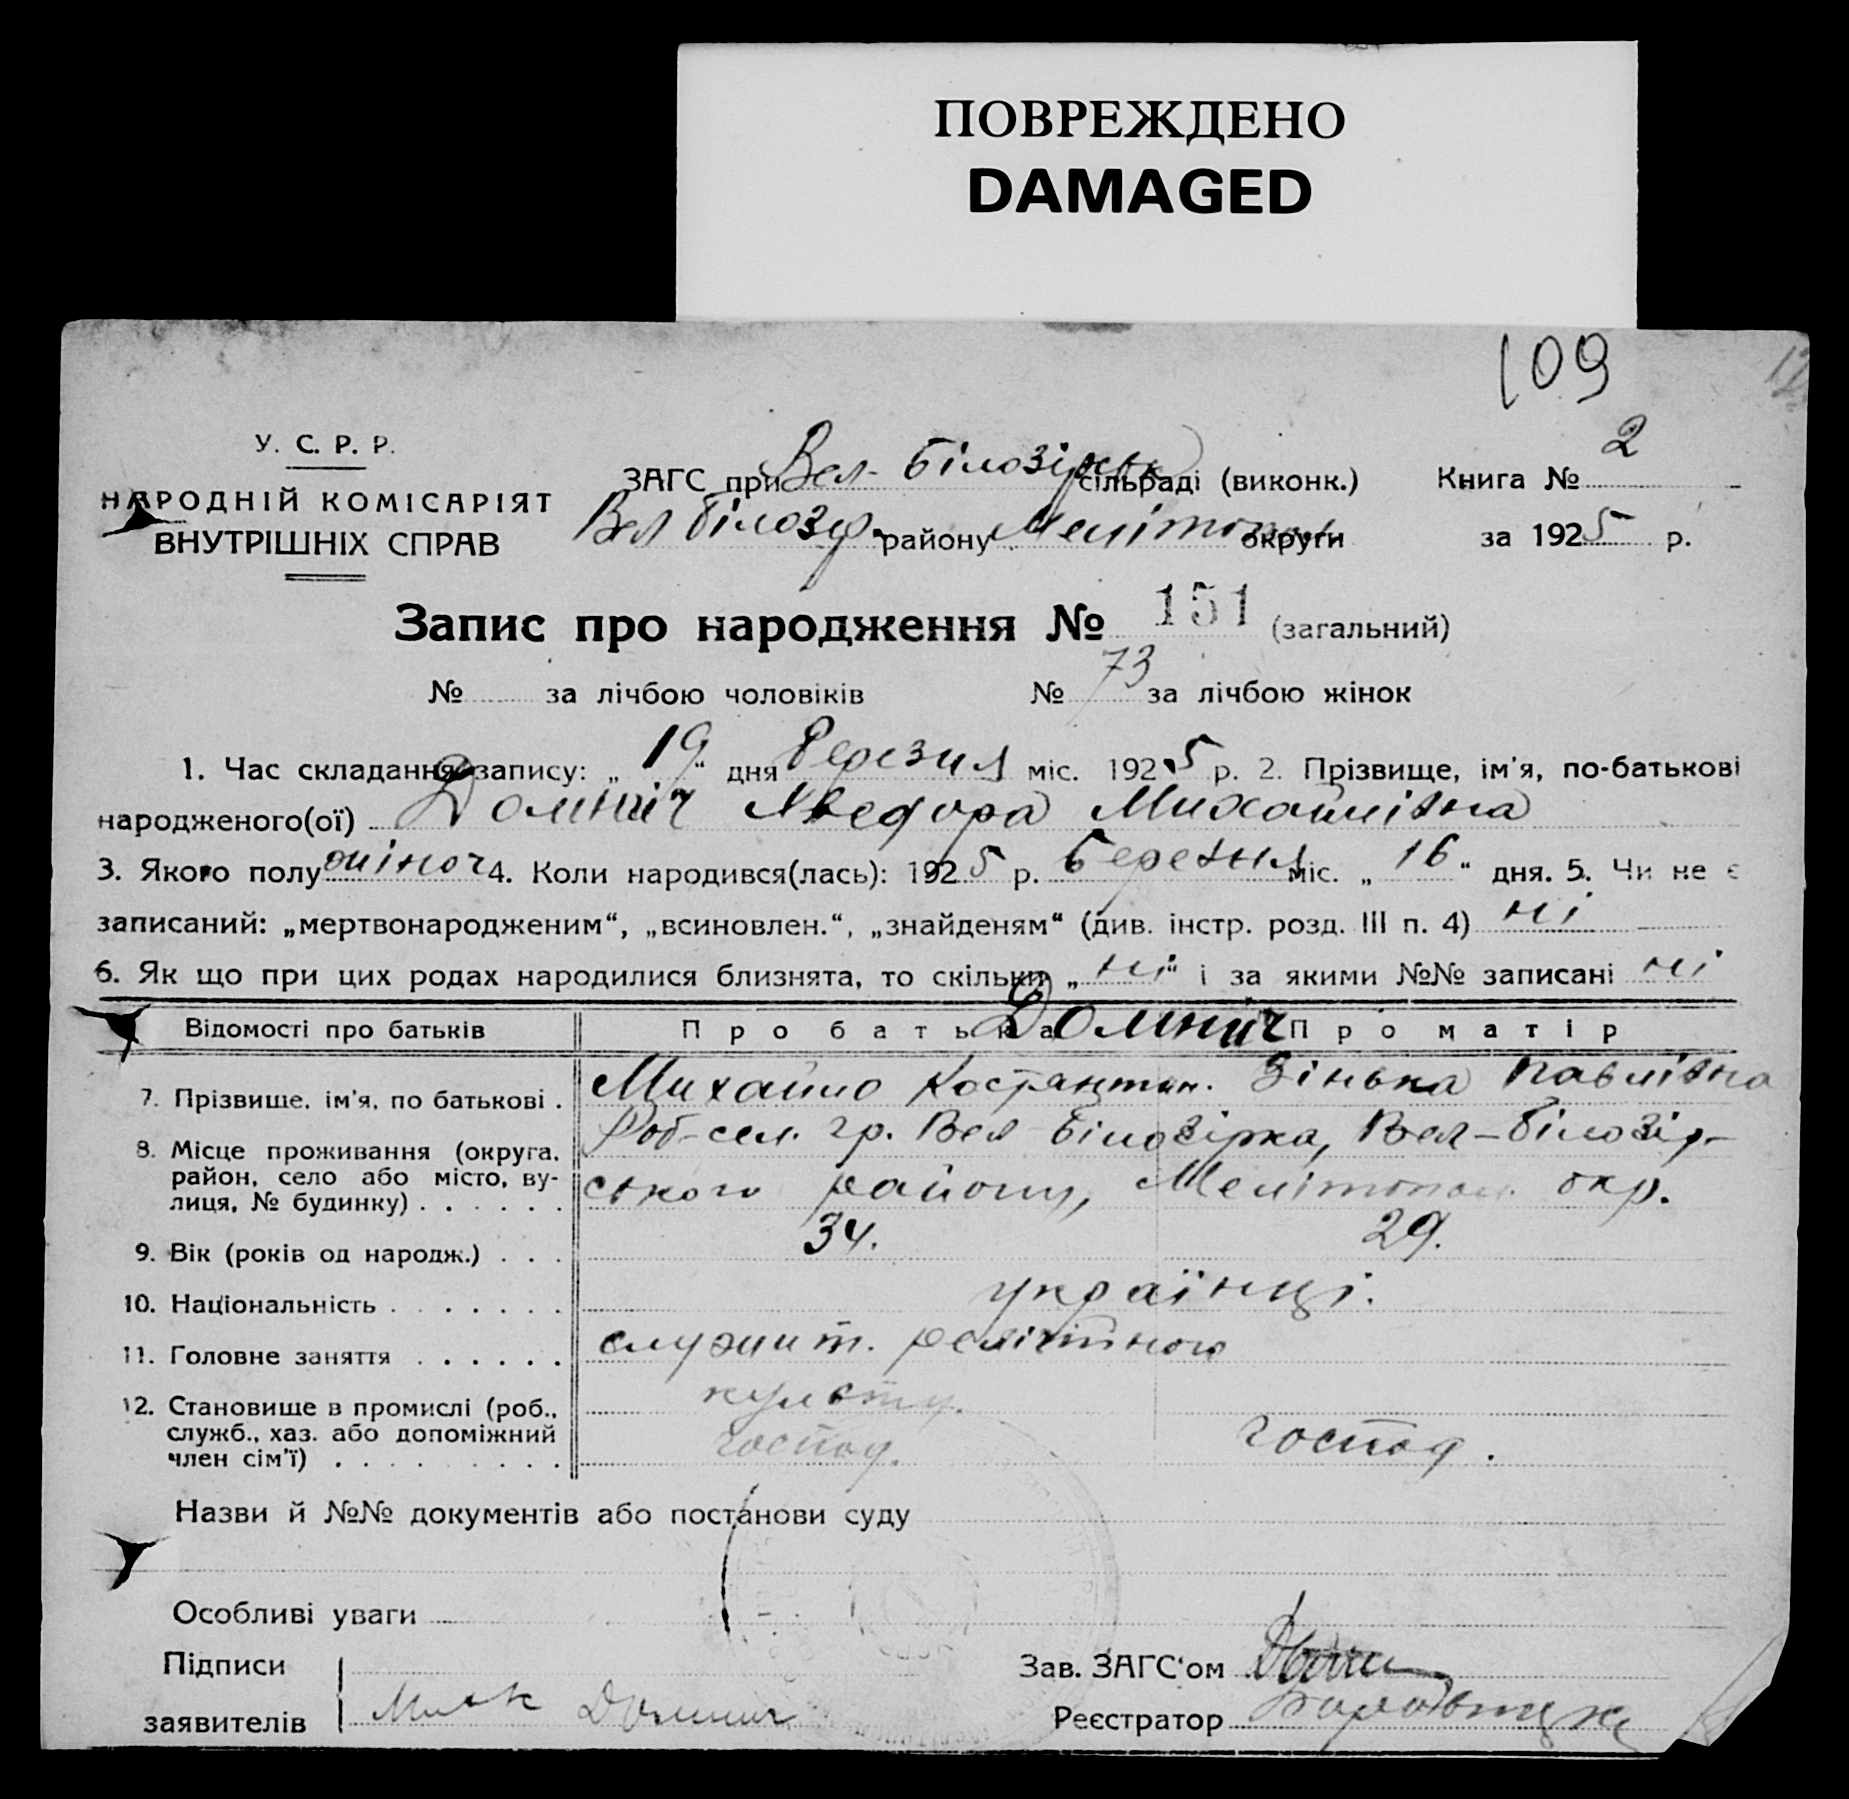 ПОВРЕЖДЕНО
DAMAGED
109
У. С. Р. Р.
НАРОДНІЙ КОМІСАРІЯТ
ВНУТРІШНІХ СПРАВ
ЗАГС при Вел-Білозірськ сільраді (виконк.)
Вел Білозір. району Мелітопол округи
Книга № 2
за 1925 р.
Запис про народження № 151 (загальний)
№ за лічбою чоловіків № 73 за лічбою жінок
1. Час складання запису: „ 19 “ дня Березня міс. 1925 р. 2. Прізвище, ім'я, по-батькові
народженого(ої) Домнич Хведора Михайлівна
3. Якого полу жіноч 4. Коли народився(лась): 1925 р. Березня міс. „ 16 “ дня. 5. Чи не є
записаний: „мертвонародженим“, „всиновлен.“, „знайденям“ (див. інстр. розд. III п. 4) ні
6. Як що при цих родах народилися близнята, то скільки „ ні “ і за якими №№ записані ні
Відомості про батьків Про батька Домнич Про матір
7. Прізвище, ім'я, по батькові . Михайло Костянтин. Зінька Павлівна
8. Місце проживання (округа, район, село або місто, вулиця, № будинку) . . . . . . Роб-сел. гр. Вел Білозірка, Вел-Білозір-
ського району, Мелітопол. окр.
9. Вік (років од народж.) . . . 34. 29.
10. Національність . . . . . . . українці.
11. Головне заняття . . . . . . служит. релігійного
культу.
12. Становище в промислі (роб., служб., хаз. або допоміжний член сім'ї) . . . . . . . . . господ. господ.
Назви й №№ документів або постанови суду
Особливі уваги
Підписи
заявителів Домнич
Зав. ЗАГС'ом
Реєстратор